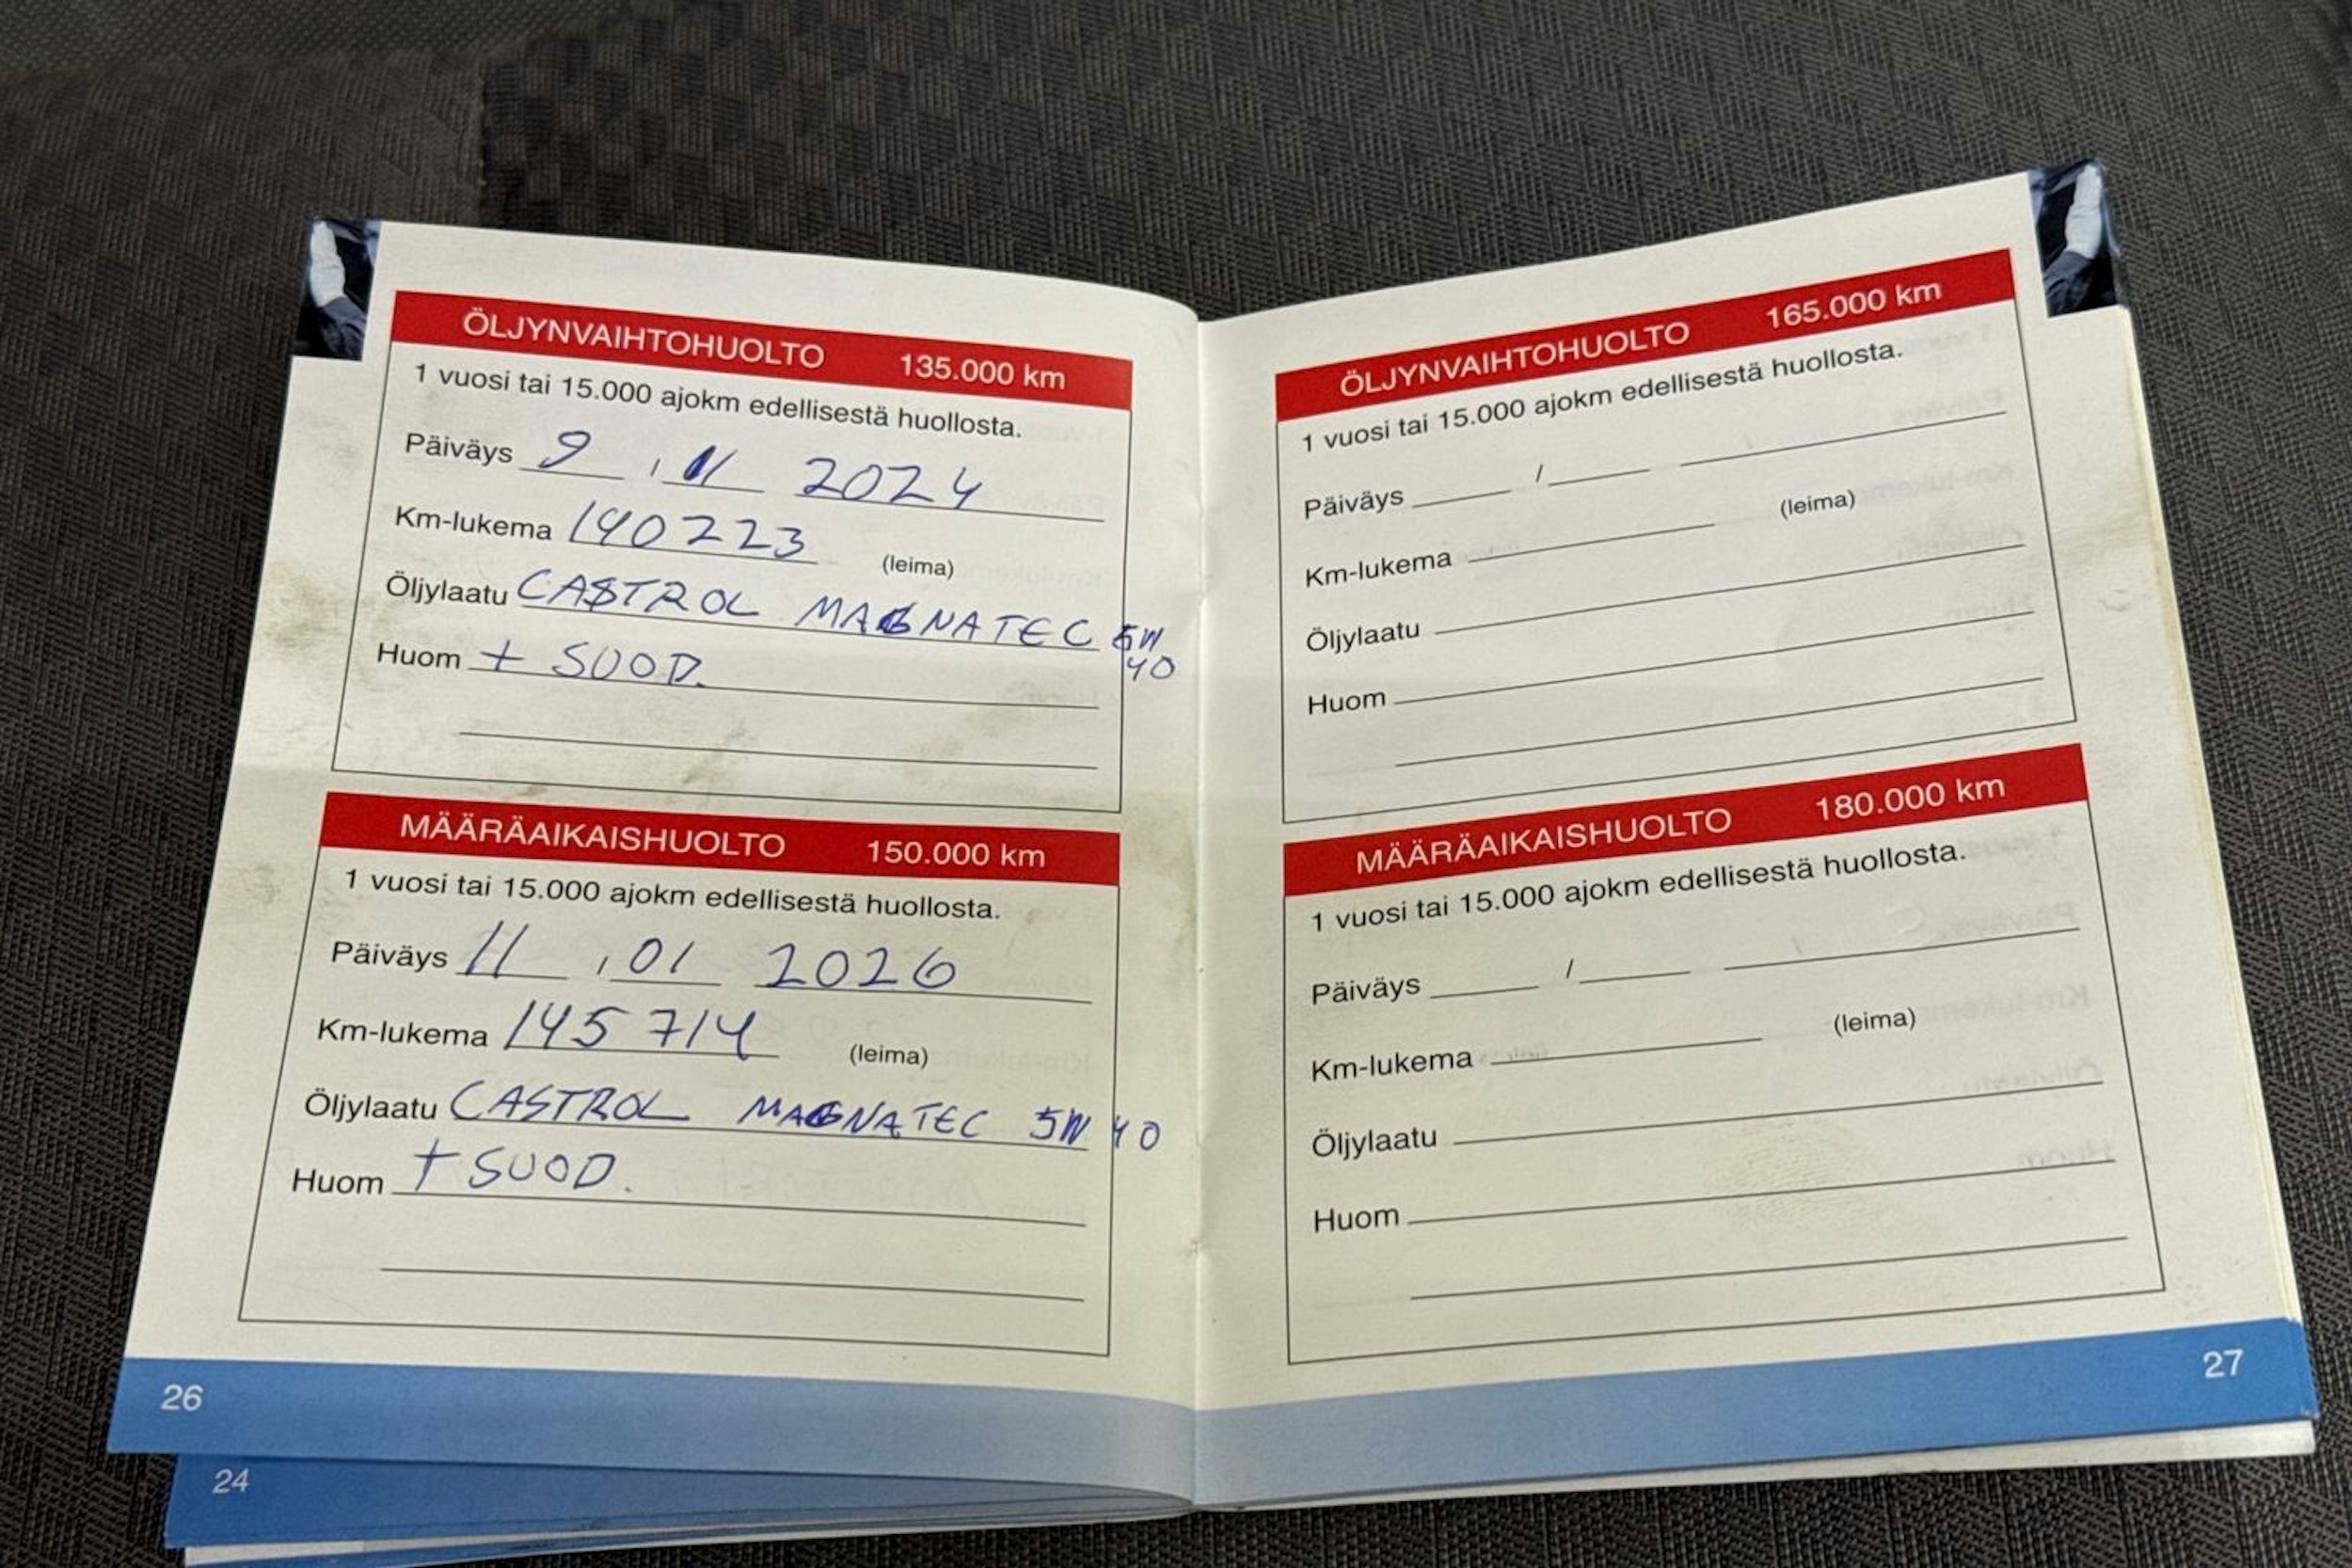 ÖLJYNVAIHTOHUOLTO 135.000 km
1 vuosi tai 15.000 ajokm edellisestä huollosta.
Päiväys 9 / 11 2024
Km-lukema 140223 (leima)
Öljylaatu CASTROL MAGNATEC 5W
40
Huom + SUOD.
MÄÄRÄAIKAISHUOLTO 150.000 km
1 vuosi tai 15.000 ajokm edellisestä huollosta.
Päiväys 11 / 01 2026
Km-lukema 145714 (leima)
Öljylaatu CASTROL MAGNATEC 5W40
Huom + SUOD.
26
24
ÖLJYNVAIHTOHUOLTO 165.000 km
1 vuosi tai 15.000 ajokm edellisestä huollosta.
Päiväys /
Km-lukema (leima)
Öljylaatu
Huom
MÄÄRÄAIKAISHUOLTO 180.000 km
1 vuosi tai 15.000 ajokm edellisestä huollosta.
Päiväys /
Km-lukema (leima)
Öljylaatu
Huom
27